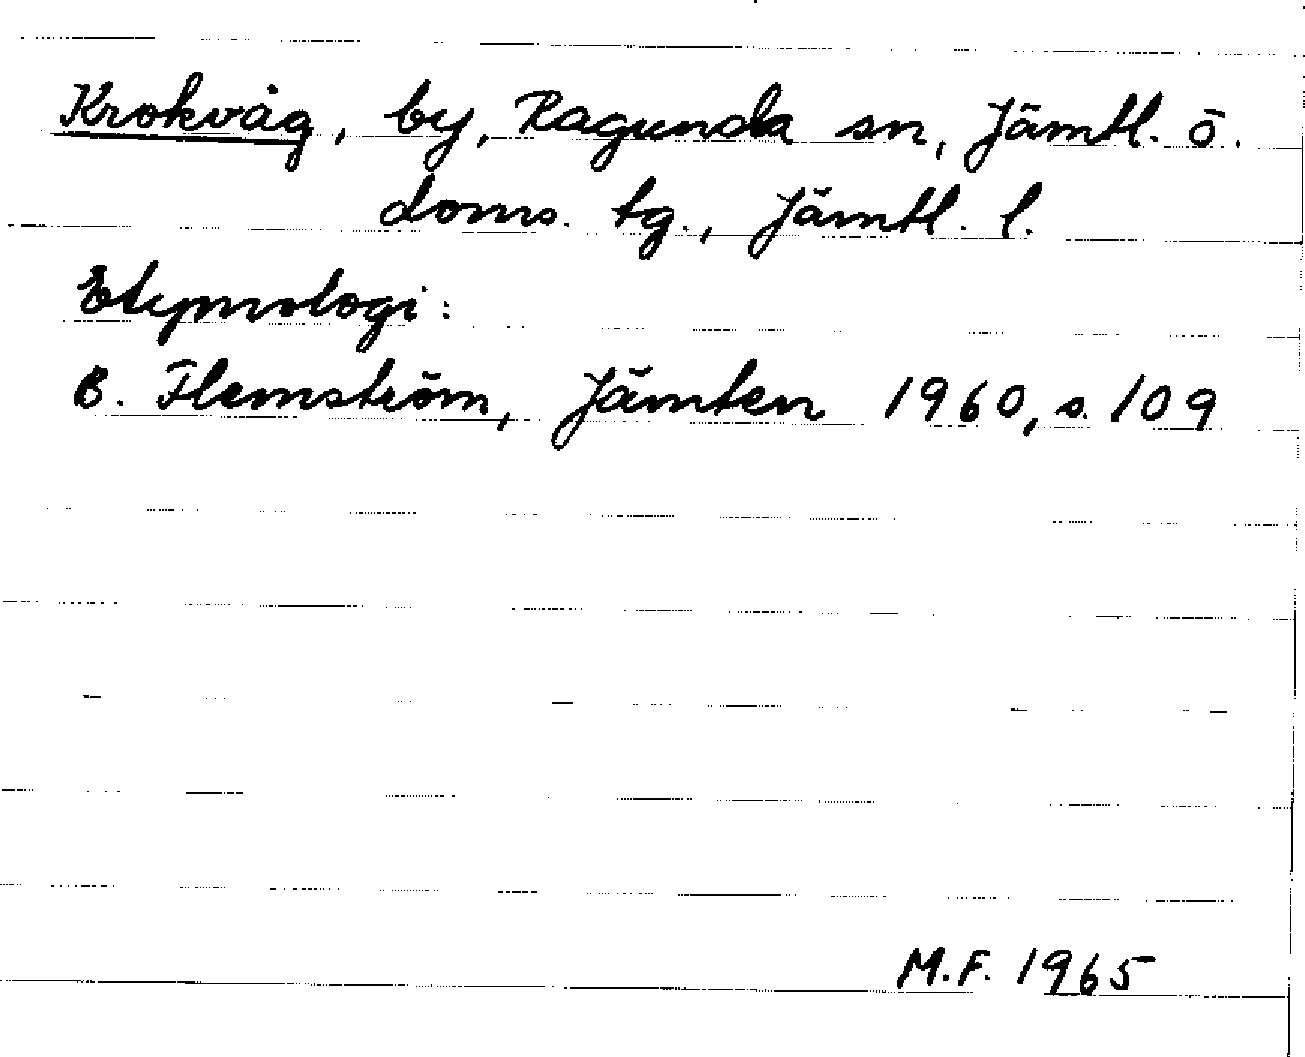 Krokvåg, by, Ragunda sn, Jämtl. ö.
doms. tg., Jämtl. l.
Etymologi:
B. Flemström, Jämten 1960, s. 109
M.F. 1965